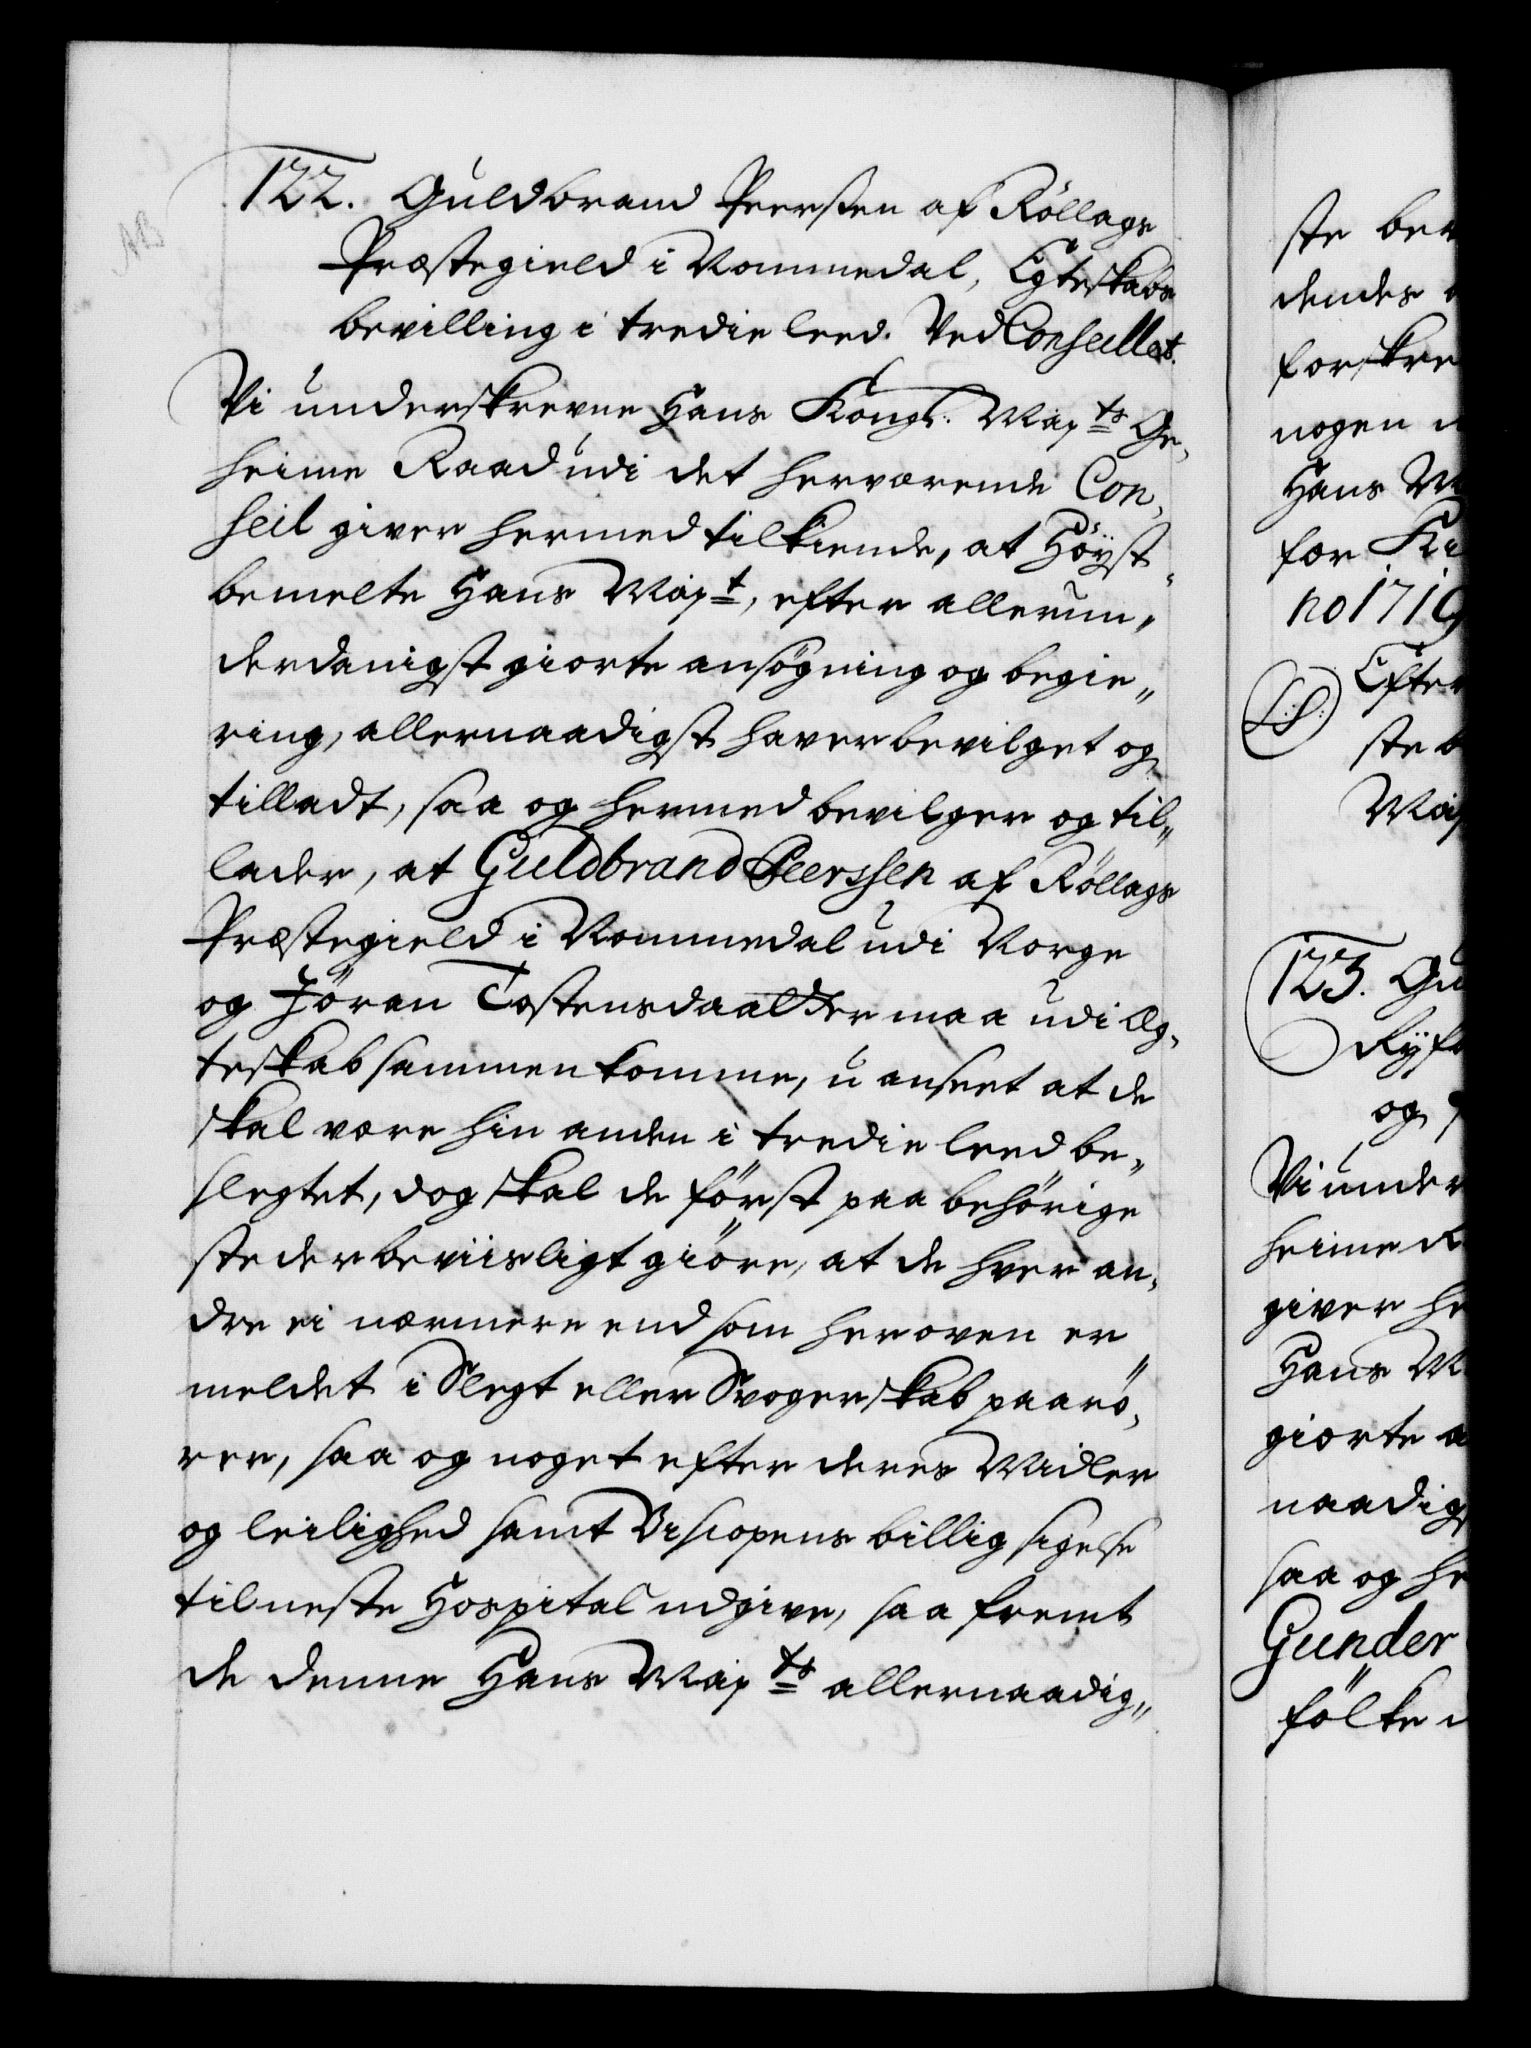 122. Guldbrand Peersen af Röllags
Præstegield i Nommedal, Egteskabs
bevilling i tredie leed. Ved Conseillet.
Vi underskrevne Hans Kongl: Mayts Ge,
heime Raad udi det herværende Con,
seil giver hermed tilkiende, at Höyst
bemelte Hans Mayt, efter allerun„
derdanigst giorte ansögning og begie„
ring, allernaadigst haver bevilget og
tilladt, saa og hermed bevilger og til„
lader, at Guldbrand Peerssen af Röllags
Præstegield i Nommedal udi Norge
og Jöran Tostensdaatter maa udi Æg,
teskab sammen komme, uanseet at de
skal være hin anden i tredie leed be„
slegtet, dog skal de först paa behörige
steder beviisligt giöre, at de hver an,
dre ei nærmere end som heroven er
meldet i Slegt eller Svogerskab paarö,
rer, saa og noget efter deres Midler
og leilighed samt Biscopens billig sigelse
til neste Hospital udgive, saa fremt
de denne Hans Mayts allernaadig„
ste
dendes
forskre
nogen
Hans
for
no 1719
Efter
L.S.
ste
May
123. Gu
Ryf
og
Vi under
heime R
giver he
Hans M
giorte a
naadigs
saa og he
Gunder
fölke